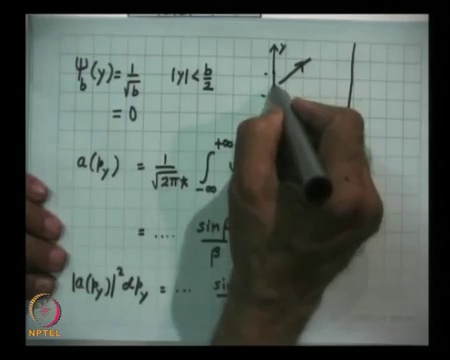 ψ_b(y) = 1/√b |y| < b/2
= 0
y
a(p_y) = 1/√2πħ ∫_{-∞}^{+∞}
= .... sin β / β
|a(p_y)|² dp_y = ... sin
NPTEL